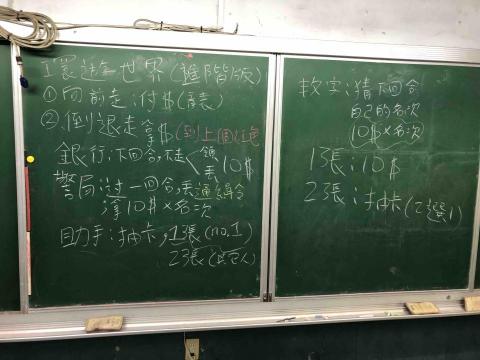 環遊世界(進階版)
①向前走:付$(講義)
②倒退走拿$(到上個紅色
銀行:下回合,不走<領 丟 10$
警局:过一回合,丟通緝令
拿10$×名次
助手:抽卡,1張(no.1)
2張(其它人)
教室:猜下回合
自己的名次
10$×名次
1張:10$
2張:抽卡(2選1)